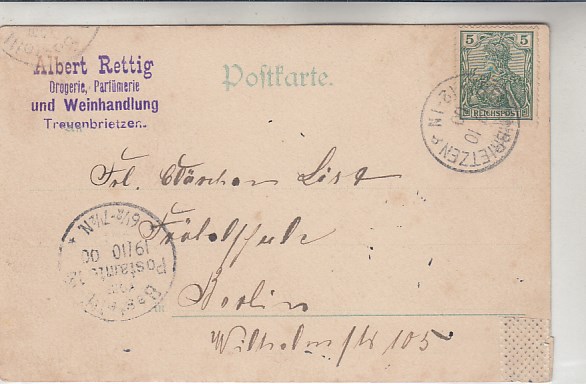 Albert Rettig
Drogerie, Parfümerie
und Weinhandlung
Treuenbrietzen.
Postkarte.
5 5
REICHSPOST
BRIETZEN
10
12-1N
Frl. Klärchen List
Fröbelschule
Berlin
Wilhelmstr 105
Bestellt
vom
Postamte
19/10 00
6¼-7½N